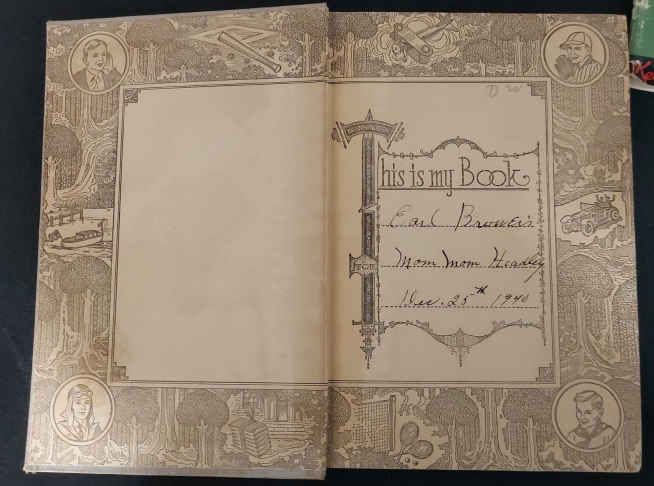 This is my Book
Earl Brower's
FROM
Mom Mom Headley
Dec. 25th 1940